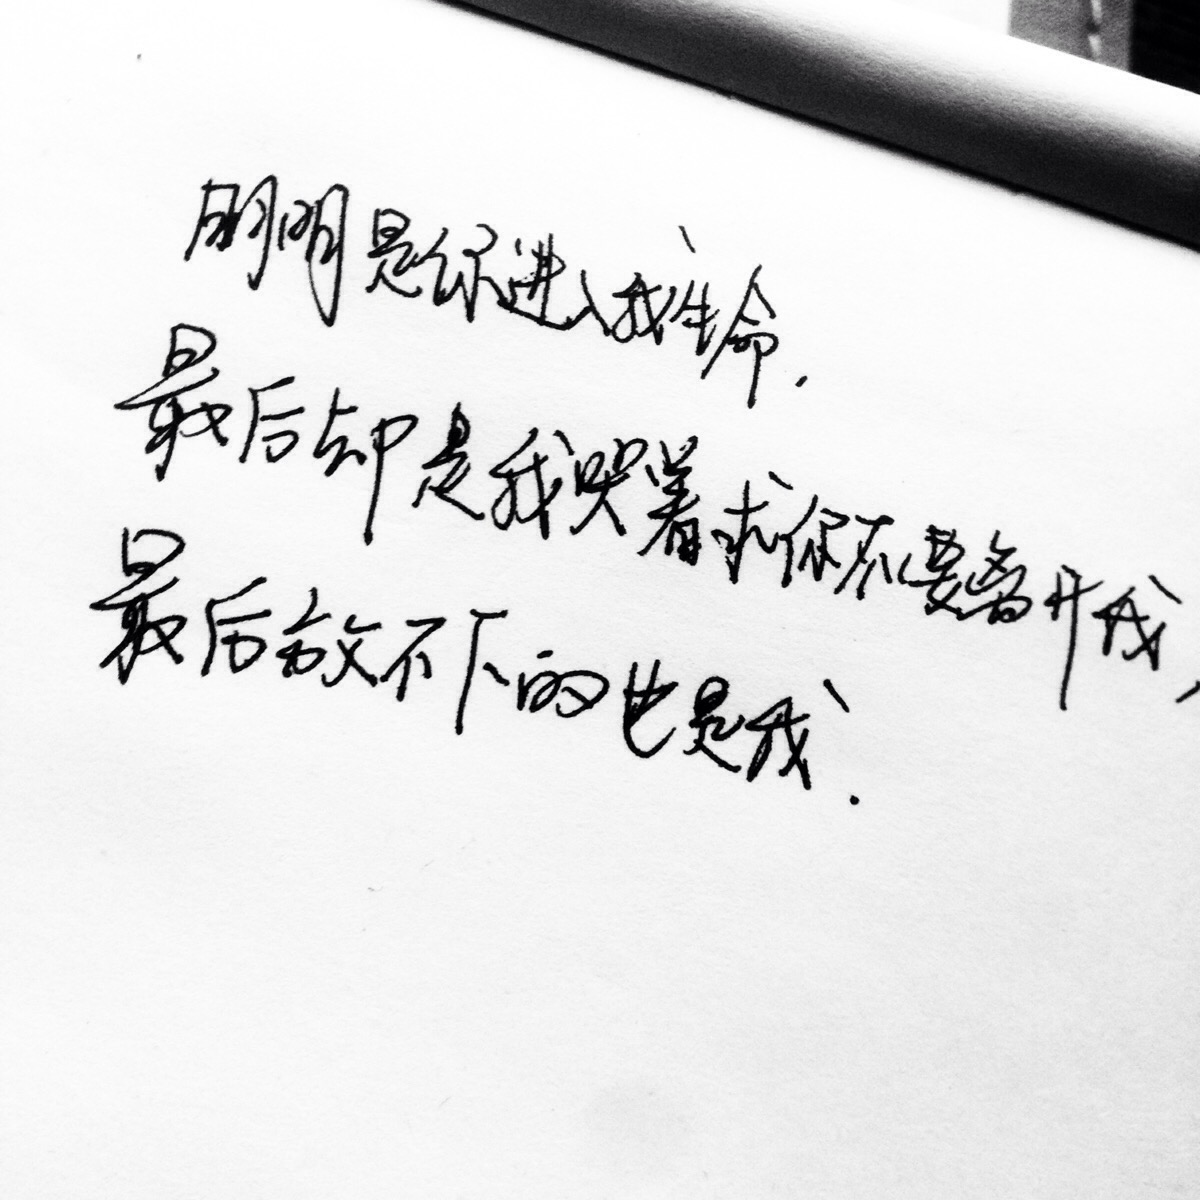 明明是你进入我生命.
最后却是我哭着求你不要离开我,
最后放不下的也是我.